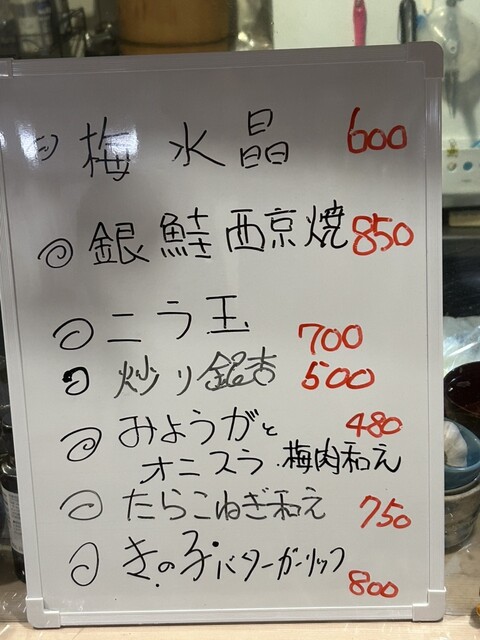 梅水晶 600
銀鮭西京焼 850
ニラ玉 700
炒り銀杏 500
みょうがと 480
オニスラ 梅肉和え
たらこねぎ和え 750
きの子バターガーリック
800